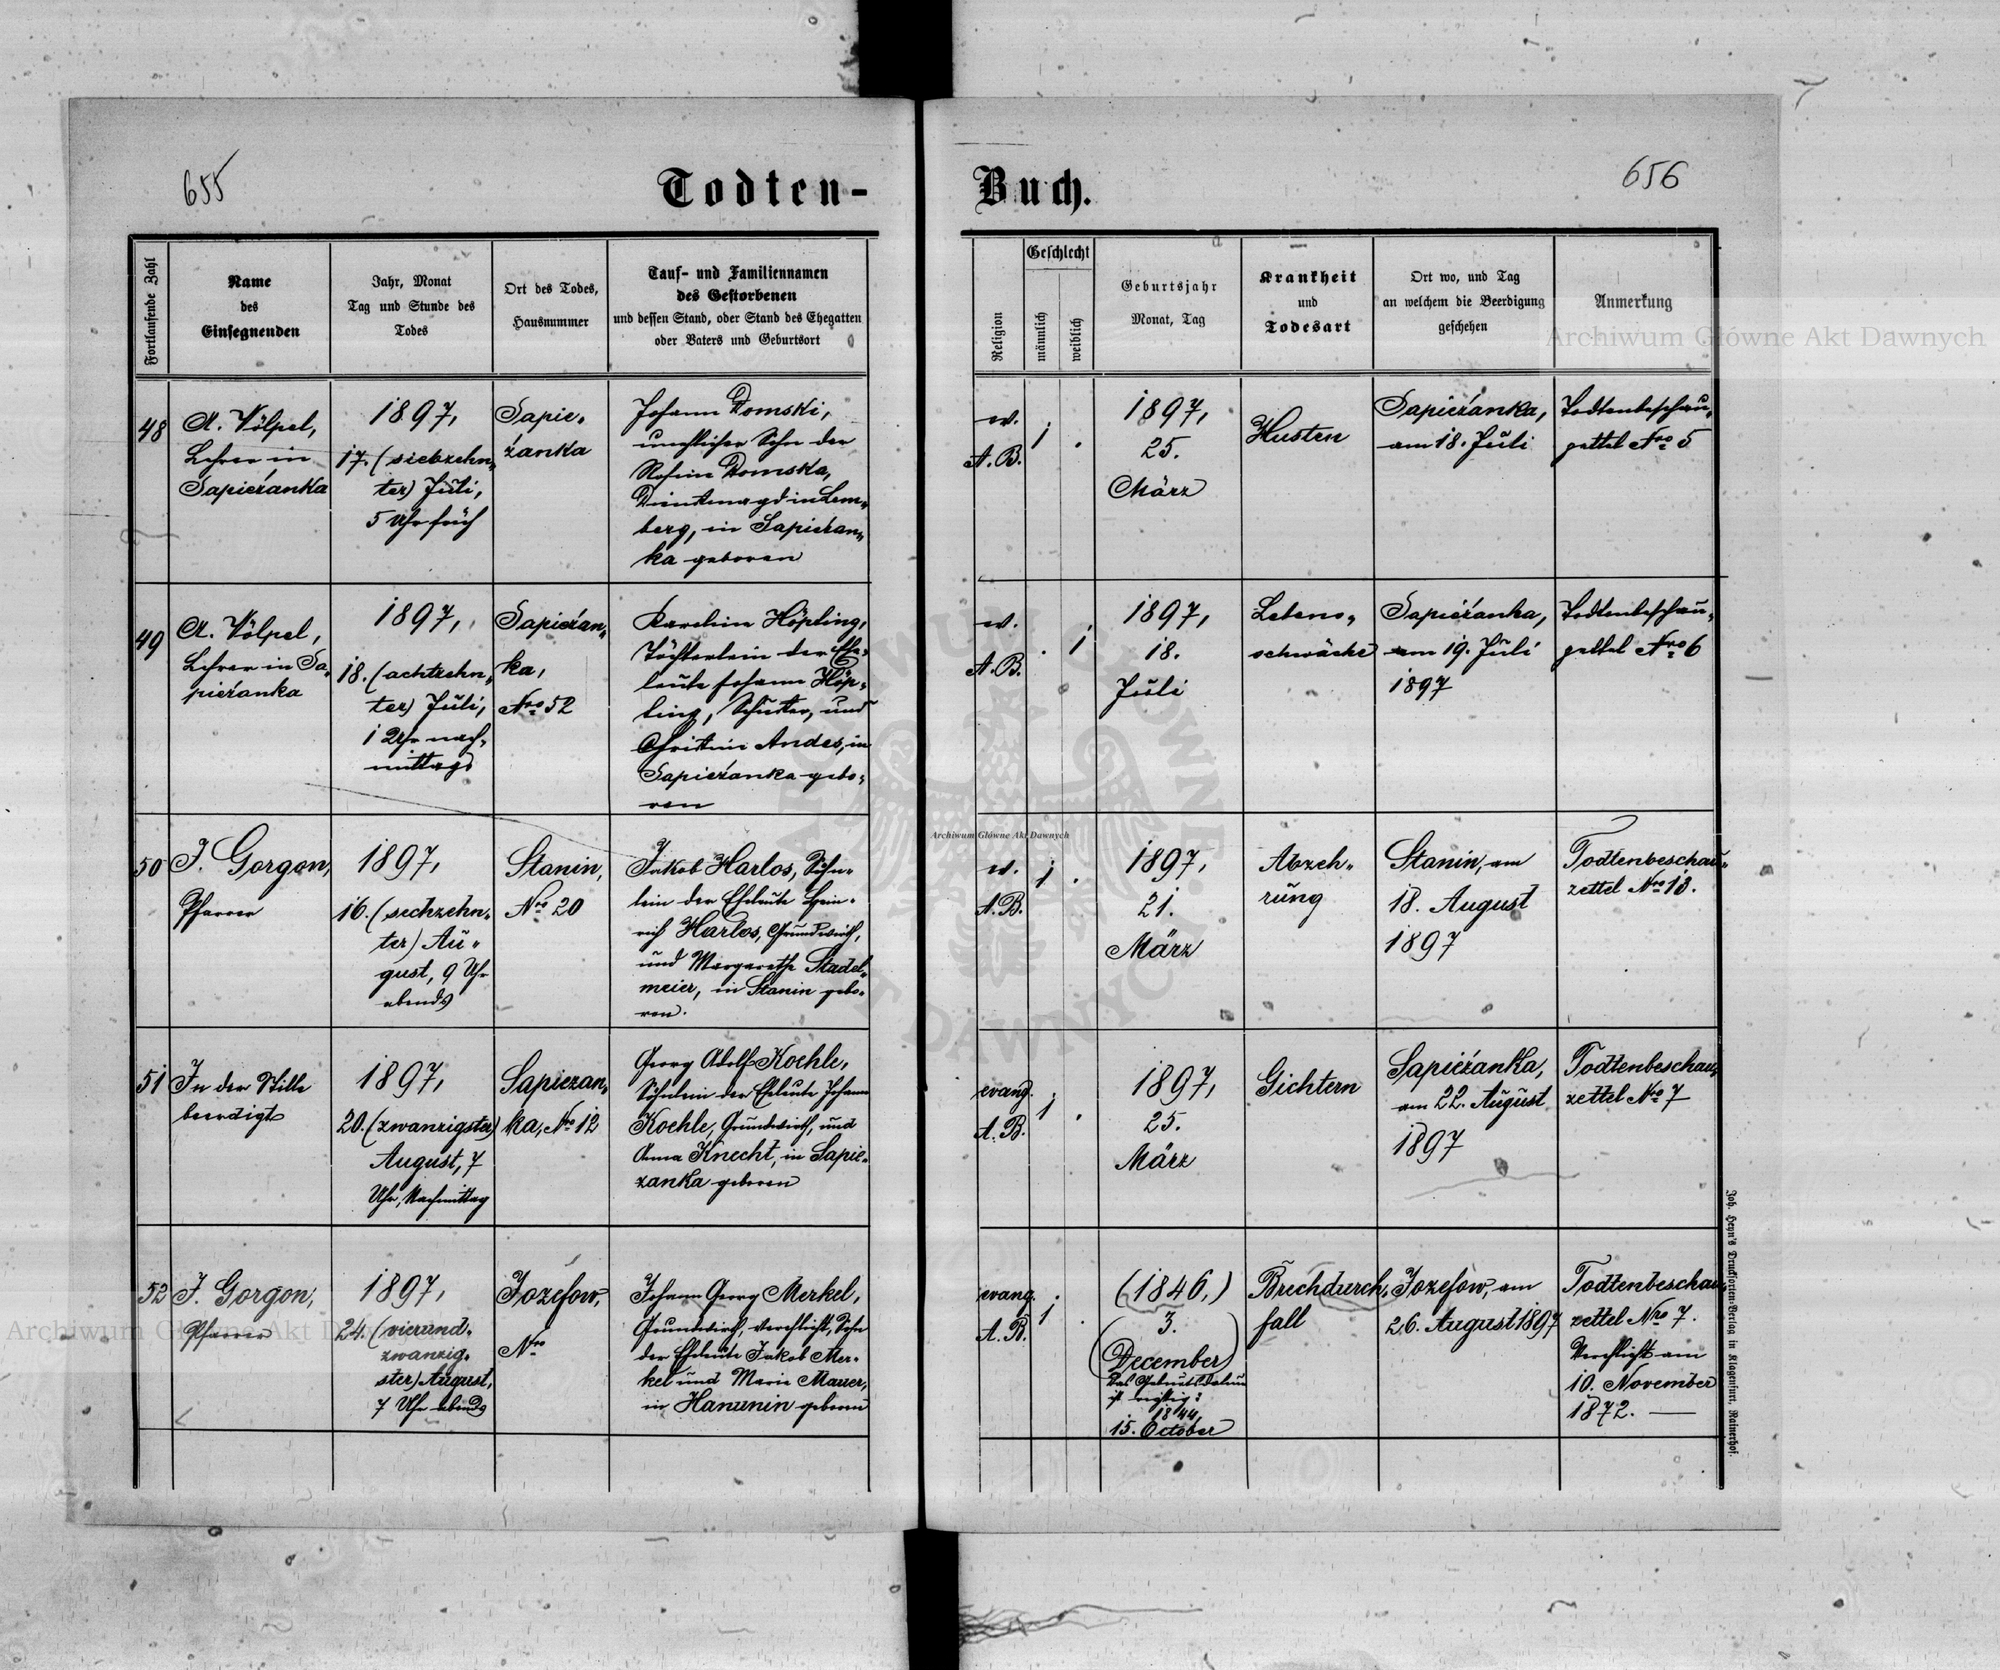 655
Todten-
Buch.
656
Fortlaufende Zahl
Name
des
Einsegnenden
Jahr, Monat
Tag und Stunde des
Todes
Ort des Todes,
Hausnummer
Tauf- und Familiennamen
des Gestorbenen
und dessen Stand, oder Stand des Ehegatten
oder Vaters und Geburtsort
Religion
Geschlecht
männlich
weiblich
Geburtsjahr
Monat, Tag
Krankheit
und
Todesart
Ort wo, und Tag
an welchem die Beerdigung
geschehen
Anmerkung
48
A. Völpel,
Lehrer in
Sapieżanka
1897,
17. (siebzehn„
ter) Juli,
5 Uhr früh
Sapie„
żanka
Johann Domski,
unehlicher Sohn der
Rosina Domska,
Dienstmagd in Lem„
berg, in Sapieżan„
ka geboren
ev.
A. B.
1
.
1897,
25.
März
Husten
Sapieżanka,
am 18. Juli
Todtenbeschau„
zettel Nro 5
49
A. Völpel,
Lehrer in Sa„
pieżanka
1897,
18. (achtzehn„
ter) Juli,
1 Uhr nach„
mittags
Sapieżan„
ka,
Nro 52
Karolina Höpling,
Töchterlein der Ehe„
leute Johann Höp„
ling, Schuster, und
Christine Andes, in
Sapieżanka gebo„
ren
ev.
A. B.
.
1
1897,
18.
Juli
Lebens„
schwäche
Sapieżanka,
am 19. Juli
1897
Todtenbeschau„
zettel Nro 6
50
J. Gorgon,
Pfarrer
1897,
16. (sechzehn„
ter) Au„
gust, 9 Uhr
abends
Stanin,
Nro 20
Jakob Harlos, Söhn„
lein der Eheleute Hein„
rich Harlos, Grundwirth,
und Margarethe Stadel„
meier, in Stanin gebo„
ren.
ev.
A. B.
1
.
1897,
21.
März
Abzeh„
rung
Stanin, am
18. August
1897
Todtenbeschau„
zettel Nro 13.
51
In der Stille
beerdigt
1897,
20. (zwanzigster)
August, 7
Uhr, Nachmittag
Sapiezan„
ka, Nro 12
Georg Adolf Koehle,
Söhnlein der Eheleute Johann
Koehle, Grundwirth, und
Anna Knecht, in Sapie„
zanka geboren
evang.
A. B.
1
.
1897,
25.
März
Gichtern
Sapieżanka,
am 22. August
1897
Todtenbeschau„
zettel Nro 7
52
J. Gorgon,
Pfarrer
1897,
24. (vierund„
zwanzig„
ster) August,
7 Uhr abends
Jozefow,
Nro
Johann Georg Merkel,
Grundwirth, verehlicht, Sohn
der Eheleute Jakob Mer„
kel und Marie Mauer,
in Hanunin geboren
evang.
A. B.
1
.
(1846,)
3.
(December)
Das Geburtsdatum
ist richtig:
1844,
15. October
Brechdurch„
fall
Jozefow, am
26. August 1897
Todtenbeschau„
zettel Nro 7.
Verehlicht am
10. November
1872. —
Joh. Heyn's Drucksorten-Verlag in Klagenfurt, Rainerhof.
Archiwum Główne Akt Dawnych
Archiwum Główne Akt Dawnych
Archiwum Główne Akt Dawnych